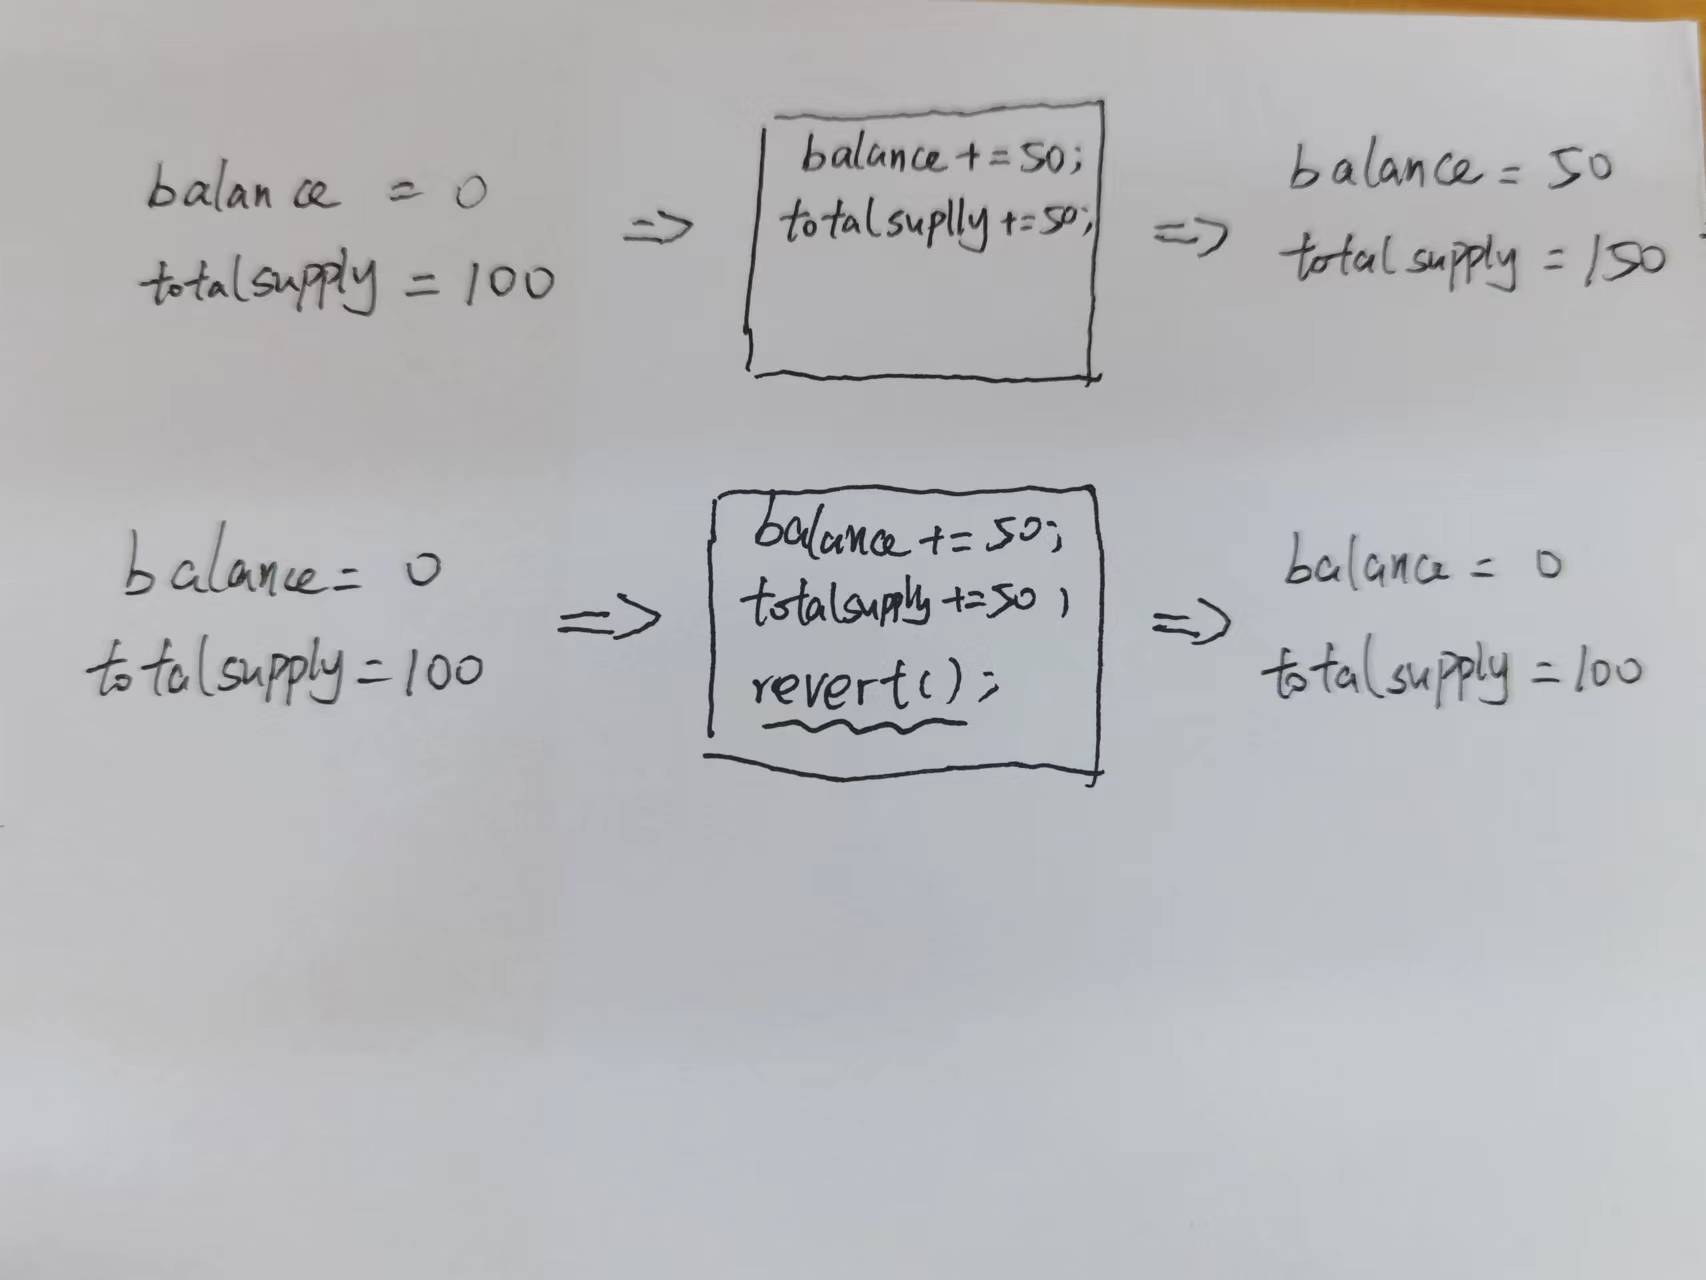 balance = 0
totalsupply = 100
=>
balance += 50;
totalsuplly += 50;
=>
balance = 50
totalsupply = 150
balance = 0
totalsupply = 100
=>
balance += 50;
totalsupply += 50;
revert();
=>
balance = 0
totalsupply = 100